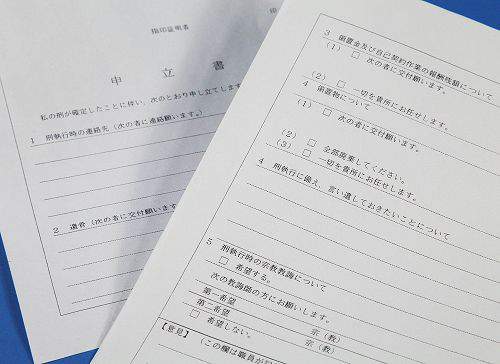 指印証明者
申立書
私の刑が確定したことに伴い、次のとおり申し立てします
1 刑執行時の連絡先（次の者に連絡願います。）
2 遺骨（次の者に交付願います
3 領置金及び自己契約作業の報酬残額について
（1） □ 次の者に交付願います。
（2） □ 一切を貴所にお任せします。
4 領置物について
（1） □ 次の者に交付願います。
（2） □ 全部廃棄してください。
（3） □ 一切を貴所にお任せします。
4 刑執行に備え、言い遺しておきたいことについて
5 刑執行時の宗教教誨について
□ 希望する。
次の教誨師の方にお願いします。
第一希望 宗（教）
第二希望 宗（教）
□ 希望しない。
【意見】
（この欄は職員が記